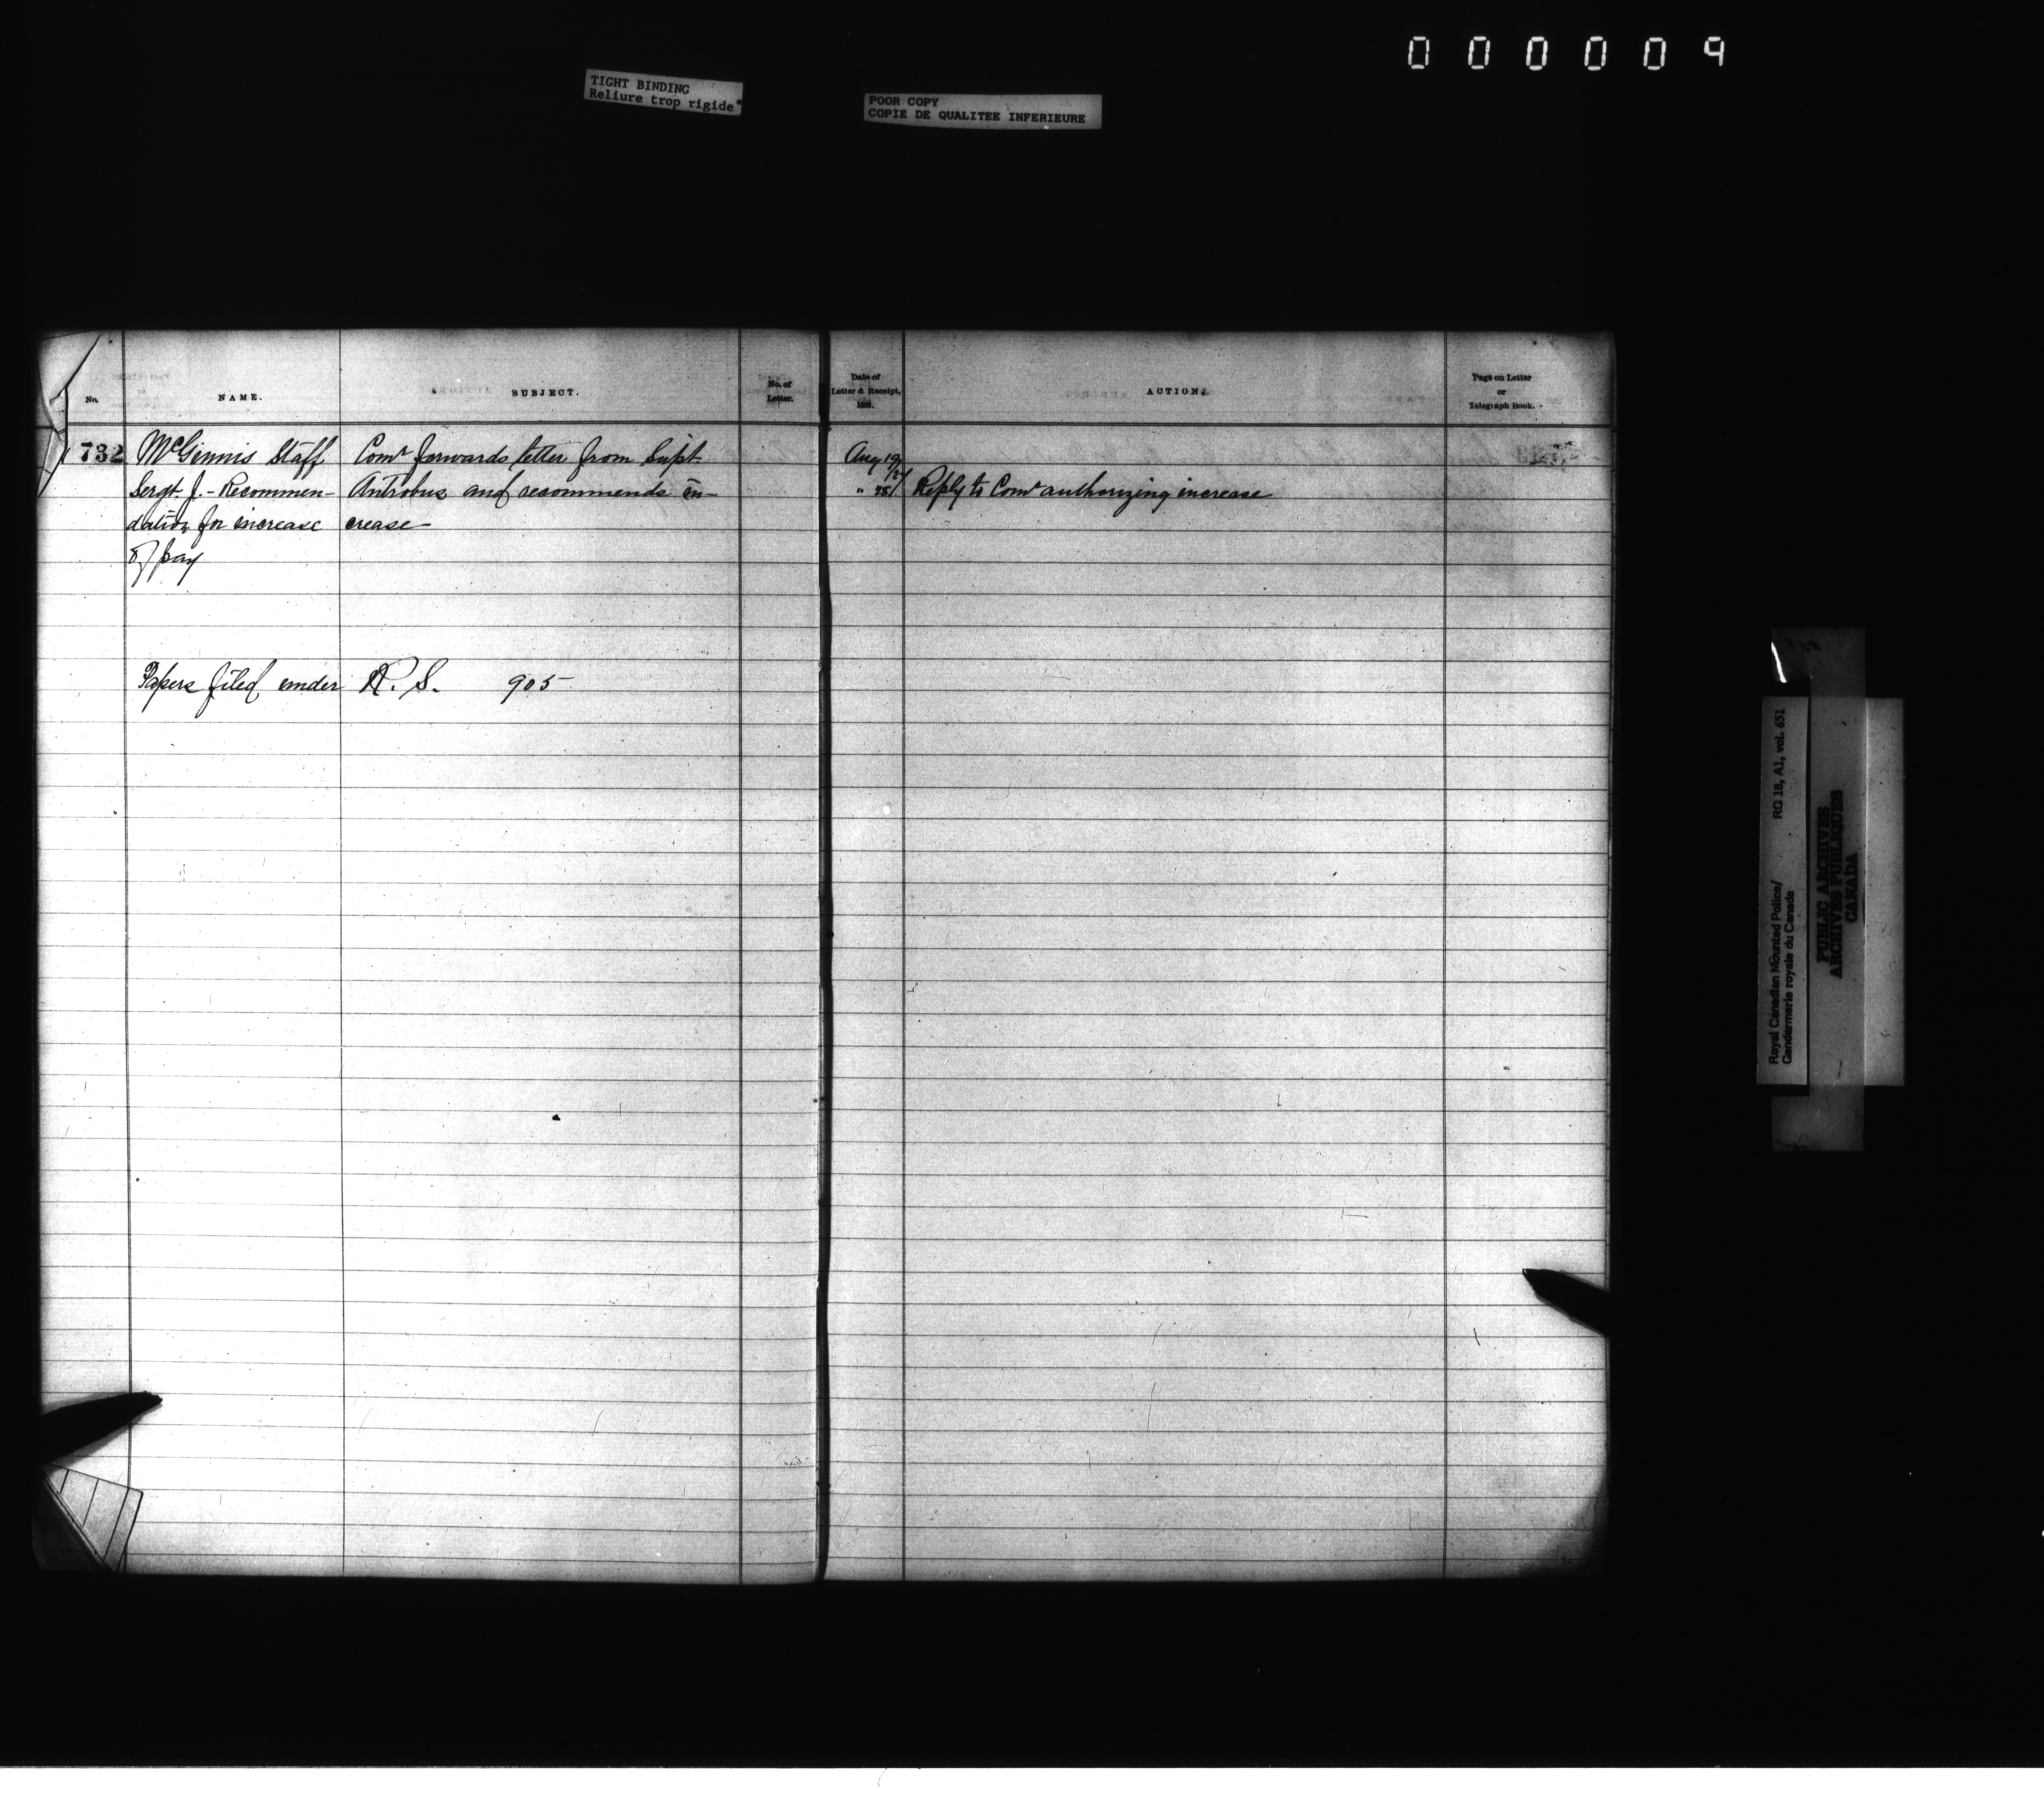 000009
TIGHT BINDING
Reliure trop rigide
POOR COPY
COPIE DE QUALITEE INFERIEURE
No.
NAME.
SUBJECT.
No. of
Letter.
Date of
Letter & Receipt,
188.
ACTION.
Page on Letter
or
Telegraph Book.
732
McGinnis Staff
Sergt. J. - Recommen-
dation for increase
of pay
Comr forwards letter from Supt
Antrobus and recommends in-
crease
Aug 19/24
" 25/
Reply to Comr authorizing increase
Papers filed under R. S. 905
Royal Canadian Mounted Police/ RG 18, A1, vol. 651
Gendarmerie royale du Canada
PUBLIC ARCHIVES
ARCHIVES PUBLIQUES
CANADA